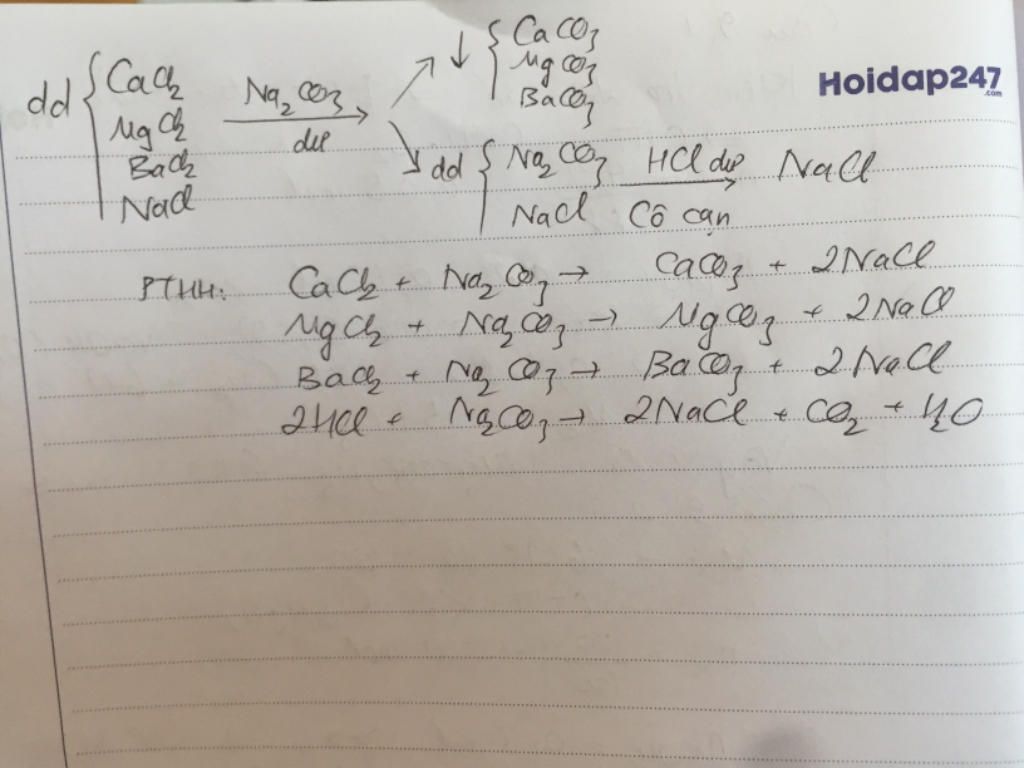 dd { CaCl₂ MgCl₂ BaCl₂ NaCl
Na₂CO₃ dư →
↓ { CaCO₃ MgCO₃ BaCO₃
dd { Na₂CO₃ NaCl
HCl dư Cô cạn → NaCl
Hoidap247.com
PTHH: CaCl₂ + Na₂CO₃ → CaCO₃ + 2NaCl
MgCl₂ + Na₂CO₃ → MgCO₃ + 2NaCl
BaCl₂ + Na₂CO₃ → BaCO₃ + 2NaCl
2HCl + Na₂CO₃ → 2NaCl + CO₂ + H₂O